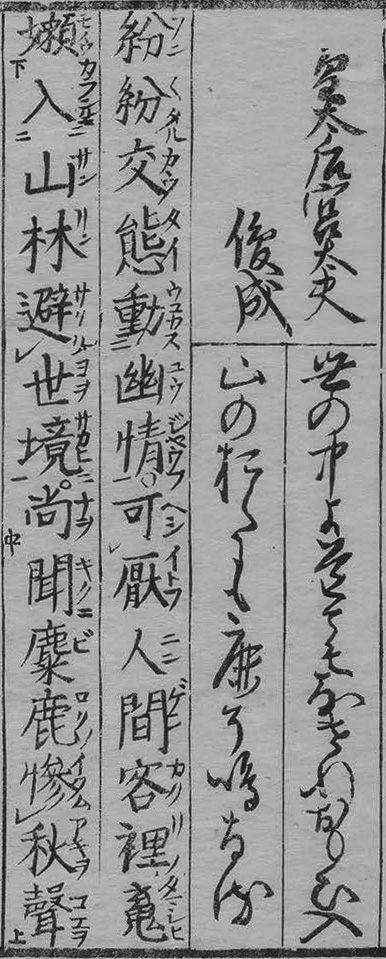 皇太后宮大夫
俊成
世の中よ道こそなけれおもひ入
山のおくにも鹿そ鳴なる
紛紛交態動幽情。可厭人間客裡䰟
嬾入山林避世境。尚聞麋鹿慘秋聲